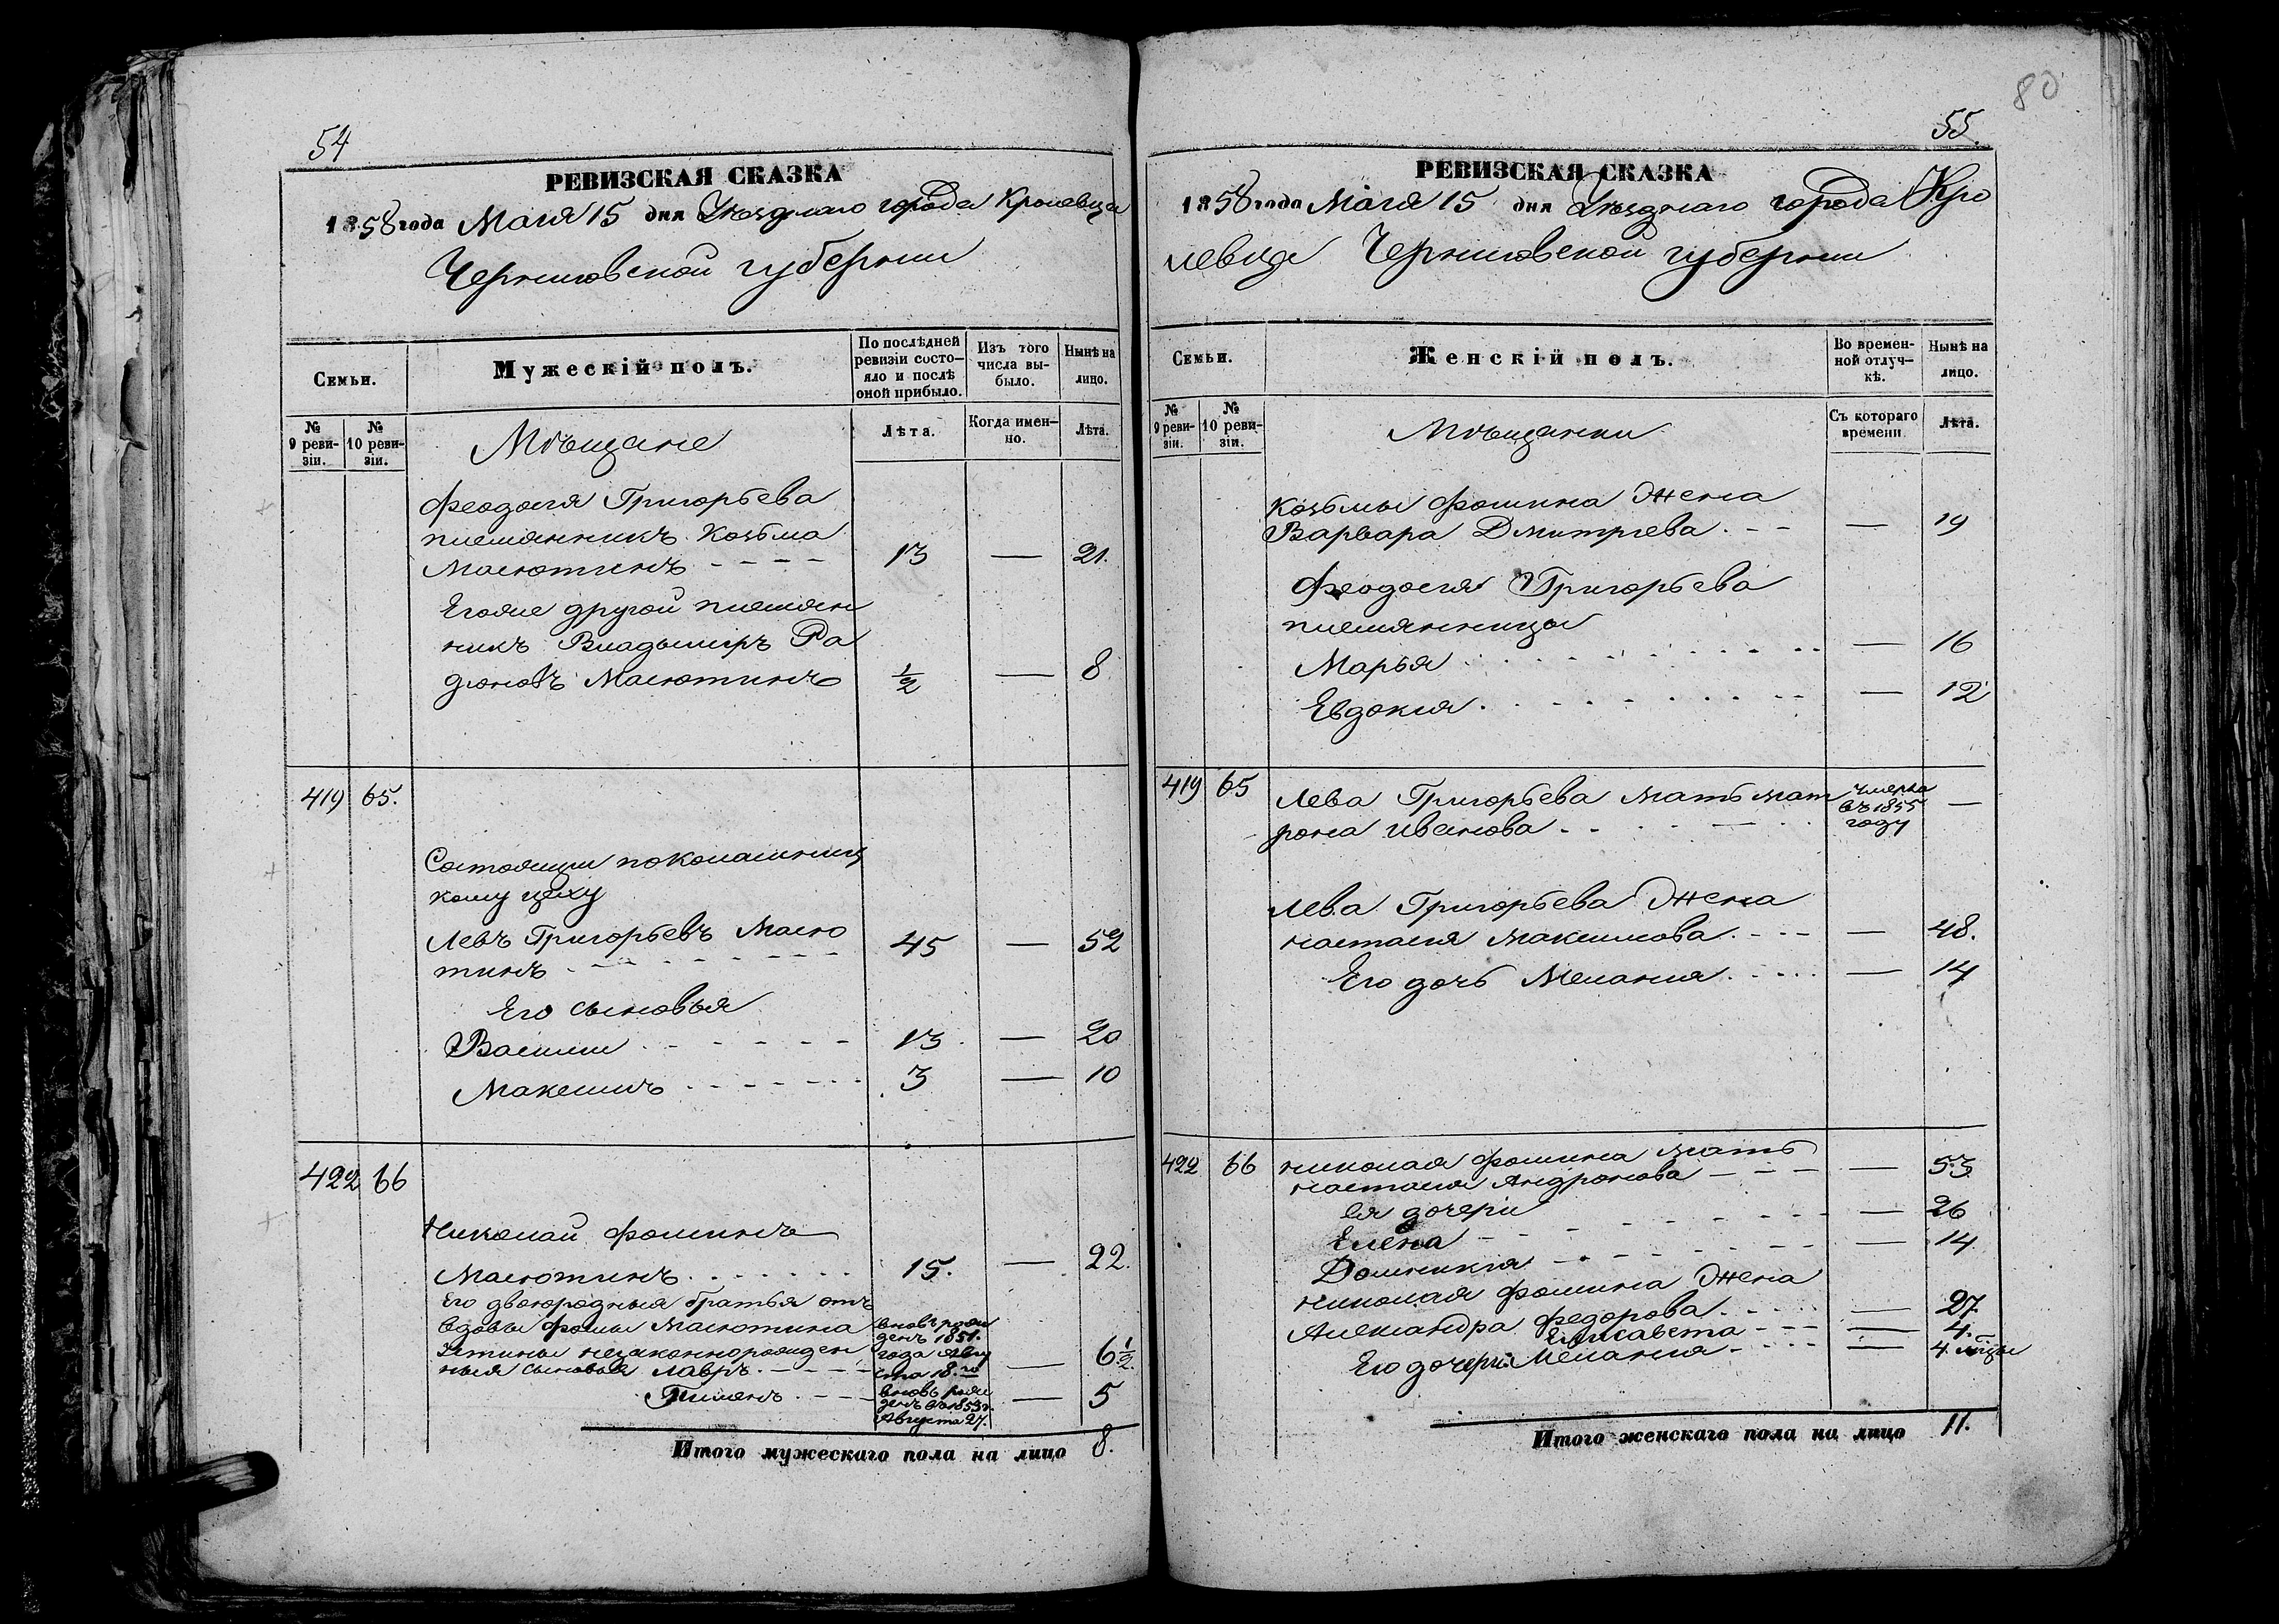 54
РЕВИЗСКАЯ СКАЗКА
1858 года Маия 15 дня Уѣзднаго города Кролевца
Черниговской губернии
Семьи.
Мужескій полъ.
По послѣдней ревизіи состо-
яло и послѣ
оной прибыло.
Изъ того
числа вы-
было.
Нынѣ на
лицо.
№ 9 реви-
зіи.
№ 10 реви-
зіи.
Мѣщане
Лѣта.
Когда имен-
но.
Лѣта.
Феодосия Григорьева
племянникъ Козьма
Масютинъ 13 — 21.
Егоже другой племян
никъ Владимиръ Ра
дионовъ Масютинъ ½ — 8
419 65.
Состоящии по
кому цеху
Левъ Григорьевъ Масю
тинъ 45 — 52
Его сыновья
Василии 13 — 20
Максимъ 3 — 10
422 66
Николай Фоминъ
Масютинъ 15. — 22.
Его двоюродныя братья отъ
вдовы Фомы Масютина
Устины незаконнорожден
ныя сыновья Лавръ вновь рож
денъ 1851.
года Авгу
ста 18.го — 6½
Пименъ вновь рож
денъ въ 1853г.
Августа 27. — 5
Итого мужескаго пола на лицо 8.
80
55
РЕВИЗСКАЯ СКАЗКА
1858 года Маия 15 дня Уѣзднаго города Кро
левца Черниговской губернии
Семьи.
Женскій полъ.
Во времен-
ной отлуч-
кѣ.
Нынѣ на
лицо.
№ 9 реви-
зіи.
№ 10 реви-
зіи.
Мѣщанки
Съ котораго
времени
Лѣта.
Козьмы Фомина Жена
Варвара Дмитриева — 19
Феодосия Григорьева
племянницы
Марья — 16
Евдокия — 12
419 65 Лева Григорьева мать мат
рона Иванова умерла
въ 1855
году —
Лева Григорьева Жена
настасия Максимова — 48.
Его дочь Мелания — 14
422 66 николая Фомина мать
настасия Андронова — 53
Ея дочери
Елена — 26
Домникия — 14
николая Фомина Жена
Александра Федорова — 27
Елисавета — 4.
Его дочери Мелания — 4
Итого женскаго пола на лицо 11.